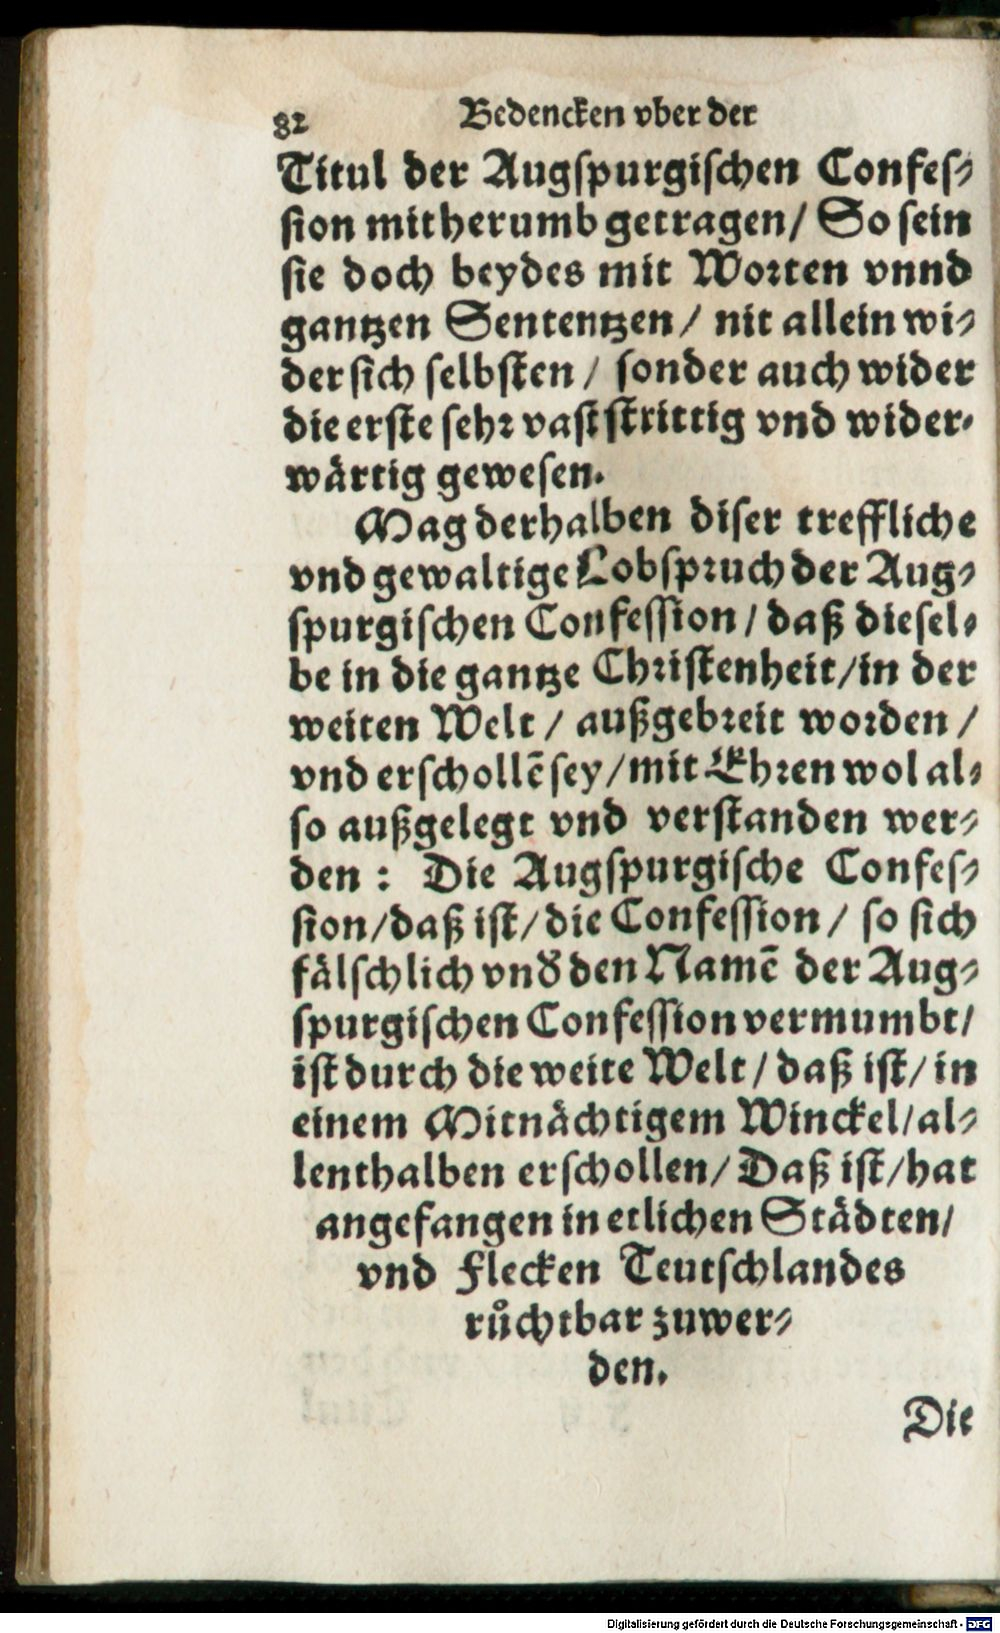 82 Bedencken vber der
Titul der Augspurgischen Confes⸗
sion mit herumb getragen/ So sein
sie doch beydes mit Worten vnnd
gantzen Sententzen/ nit allein wi⸗
der sich selbsten/ sonder auch wider
die erste sehr vast strittig vnd wider⸗
wärtig gewesen.
Mag derhalben diser treffliche
vnd gewaltige Lobspruch der Aug⸗
spurgischen Confession/ daß diesel⸗
be in die gantze Christenheit/in der
weiten Welt/ außgebreit worden/
vnd erschollē sey/mit Ehren wol al⸗
so außgelegt vnd verstanden wer⸗
den: Die Augspurgische Confes⸗
sion/daß ist/die Confession/ so sich
fälschlich vnd̕ den Namē der Aug⸗
spurgischen Confession vermumbt/
ist durch die weite Welt/daß ist/in
einem Mitnächtigem Winckel/al⸗
lenthalben erschollen/Daß ist/hat
angefangen in etlichen Städten/
vnd Flecken Teutschlandes
růchtbar zuwer⸗
den.
Die
Digitalisierung gefördert durch die Deutsche Forschungsgemeinschaft - DFG